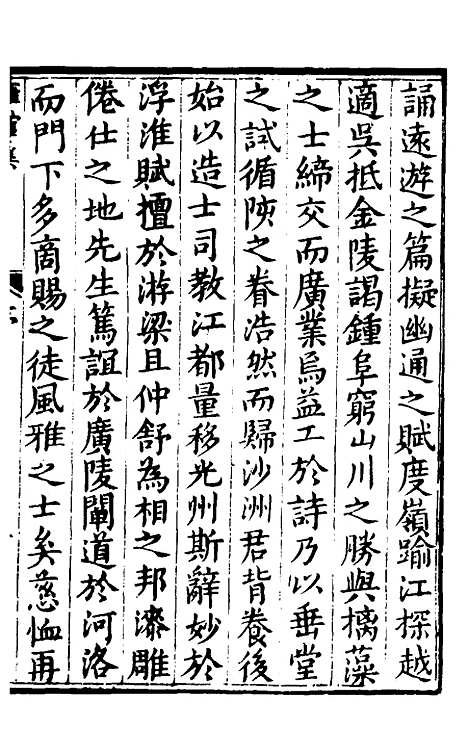 誦遠遊之篇擬幽通之賦度嶺踰江探越
適吳抵金陵謁鍾阜窮山川之勝與摛藻
之士締交而廣業焉益工於詩乃以垂堂
之試循陝之眷浩然而歸沙洲君背養後
始以造士司教江都量移光州斯辭妙於
浮淮賦擅於游梁且仲舒為相之邦漆雕
倦仕之地先生篤誼於廣陵闡道於河洛
而門下多商賜之徒風雅之士矣慈恤再